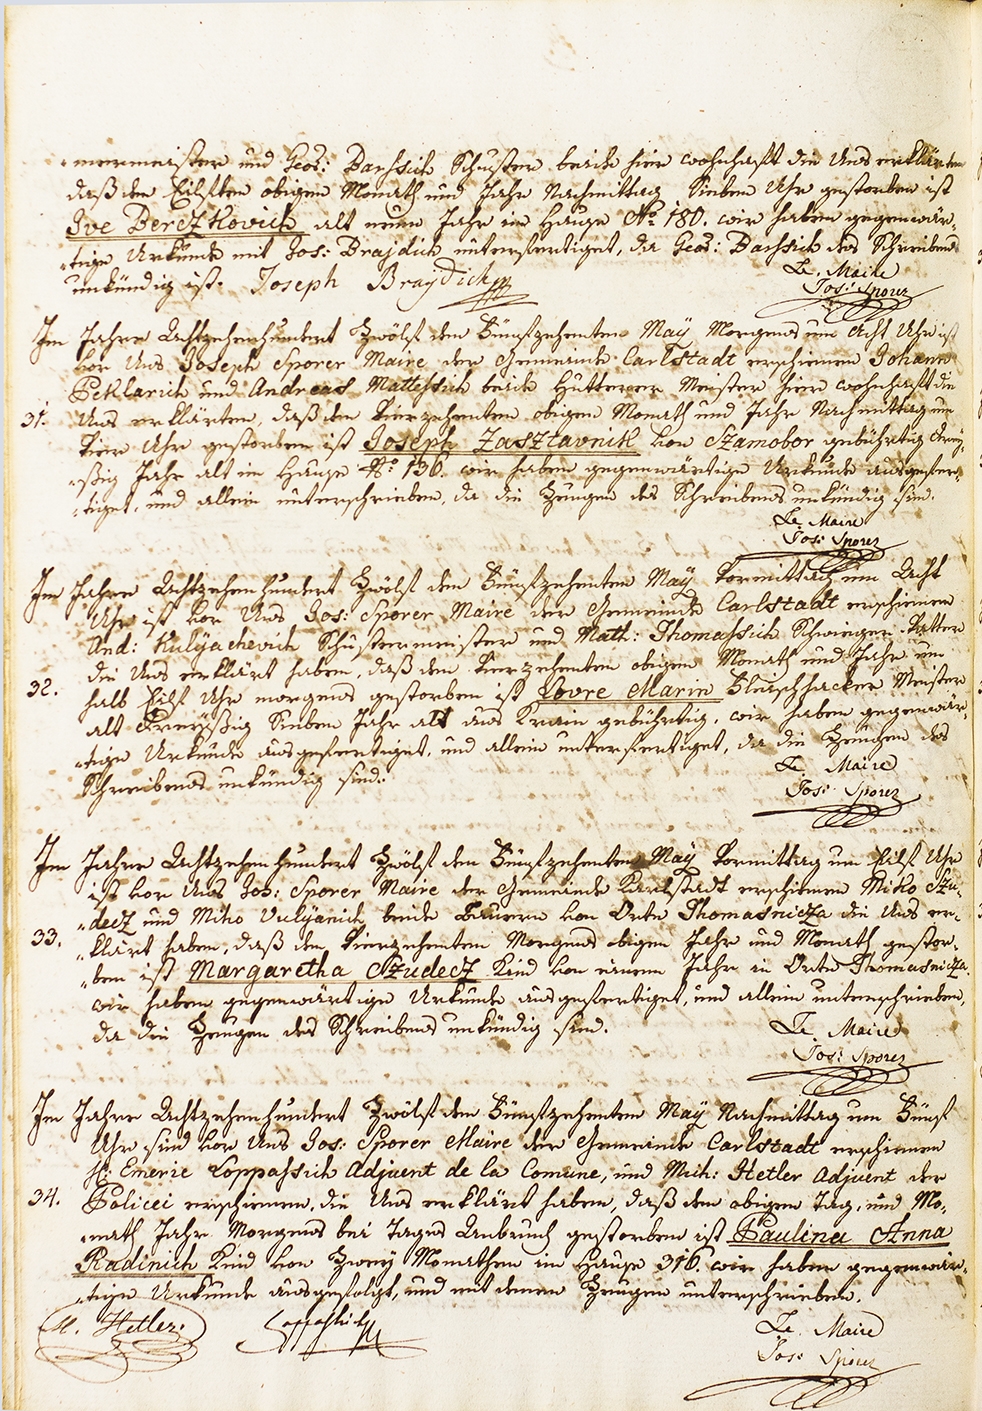 „mermeister und Geor: Barssich Schuster beide hier wohnhaft die Uns erklärten
daß den Eilften obigen Monath und Jahr Nachmittag Sieben Uhr gestorben ist
Ive Berczkovich alt neun Jahr im Hause No. 180. wir haben gegenwär„
„tige Urkunde mit Jos: Brajdich unterfertiget, da Geor: Barssich des Schreibens
unkündig ist. Joseph Brajdich
Le. Maire
Jos: Sporer
Im Jahre Achtzehenhundert Zwölf den Fünfzehenten May Morgens um Acht Uhr ist
vor Uns Joseph Sporer Maire der Gemeinde Carlstadt erschienen Johann
Peklarich und Andreas Mattessich beide Hutterer Meister hier wohnhaft die
31. Uns erklärten, daß den Vierzehenten obigen Monath und Jahr Nachmittag um
Vier Uhr gestorben ist Joseph Zasztavnik von Szamobor gebührtig drey„
„ßig Jahr alt im Hause No. 136. wir haben gegenwärtige Urkunde ausgefer„
„tiget, und allein unterschrieben, da die Zeugen des Schreibens unkündig sin.
Le. Maire
Jos: Sporer
Im Jahre Achtzehenhundert Zwölf den Fünfzehenten May Vormittag um Acht
Uhr ist vor Uns Jos: Sporer Maire der Gemeinde Carlstadt erschienen
And: Kulyachevich Schustermeister und Math: Thomassich Schwieger Vatter
die Uns erklärt haben, daß den Vierzehenten obigen Monath und Jahr um
32. halb Eilf Uhr morgens gestorben ist Lovre Marin Fleischhacker Meister
alt Dreyßig Sieben Jahr alt aus Krain gebührtig, wir haben gegenwär„
„tige Urkunde ausgefertiget, und allein unterfertiget, da die Zeuchen des
Schreibens unkündig sind.
Le Maire
Jos: Sporer
Im Jahre Achtzehenhundert Zwölf den Fünfzehenten May Vormittag um Eilf Uhr
ist vor Uns Jos: Sporer Maire der Gemeinde Karlstadt erschienen Miko Szu„
„decz und Miho Vulyanich beide Bauern von Orte Thomasnicza die Uns er„
33. „klärt haben, daß den Vierzehenten Morgens obigen Jahr und Monath gestor„
„ben ist Margaretha Szudecz Kind von einem Jahr in Orte Thomasnicza.
wir haben gegenwärtige Urkunde ausgefertiget, und allein unterschrieben,
da die Zeugen des Schreibens unkündig sin.
Le Maire
Jos: Sporer
Im Jahre Achtzehenhundert Zwölf den Fünfzehenten May Nachmittag um Fünf
Uhr sind vor Uns Jos: Sporer Maire der Gemeinde Carlstadt erschienen
H: Emeric Loppassich Adjuent de la Comune, und Mich: Hetler Adjuent der
34. Policei erschienen, die Uns erklärt haben, daß den obigen Tag, und Mo„
„nath Jahr Morgens bei Tages Anbruch gestorben ist Paulina Anna
Radinich Kind von Zwey Monathen im Hause 316. wir haben gegenwär„
„tige Urkunde ausgefolgt, und mit denen Zeugen unterschrieben.
M. Hetler. Loppassich
Le. Maire
Jos: Sporer